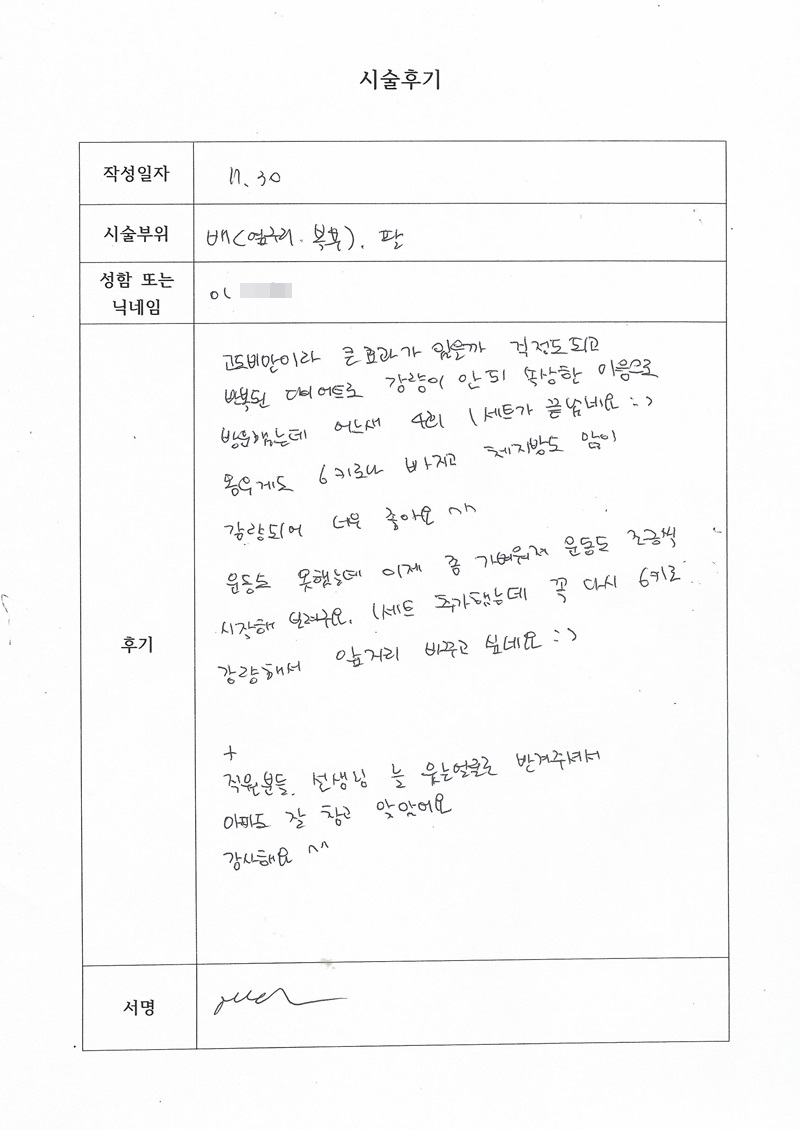 시술후기
작성일자 11. 30
시술부위 배(옆구리. 복부). 팔
성함 또는 닉네임 이
후기
고도비만이라 큰 효과가 있을까 걱정도되고
반복된 다이어트로 감량이 안되 속상한 마음으로
방문했는데 어느새 4회 1세트가 끝났네요 :)
몸무게도 6키로나 빠지고 체지방도 많이
감량되어 너무 좋아요 ^^
운동도 못했는데 이제 좀 가벼워져 운동도 조금씩
시작해 보려구요. 1세트 추가했는데 꼭 다시 6키로
감량해서 앞자리 바꾸고 싶네요 :)
+
직원분들, 선생님 늘 웃는얼굴로 반겨주셔서
아파도 잘 참고 맞았어요
감사해요 ^^
서명